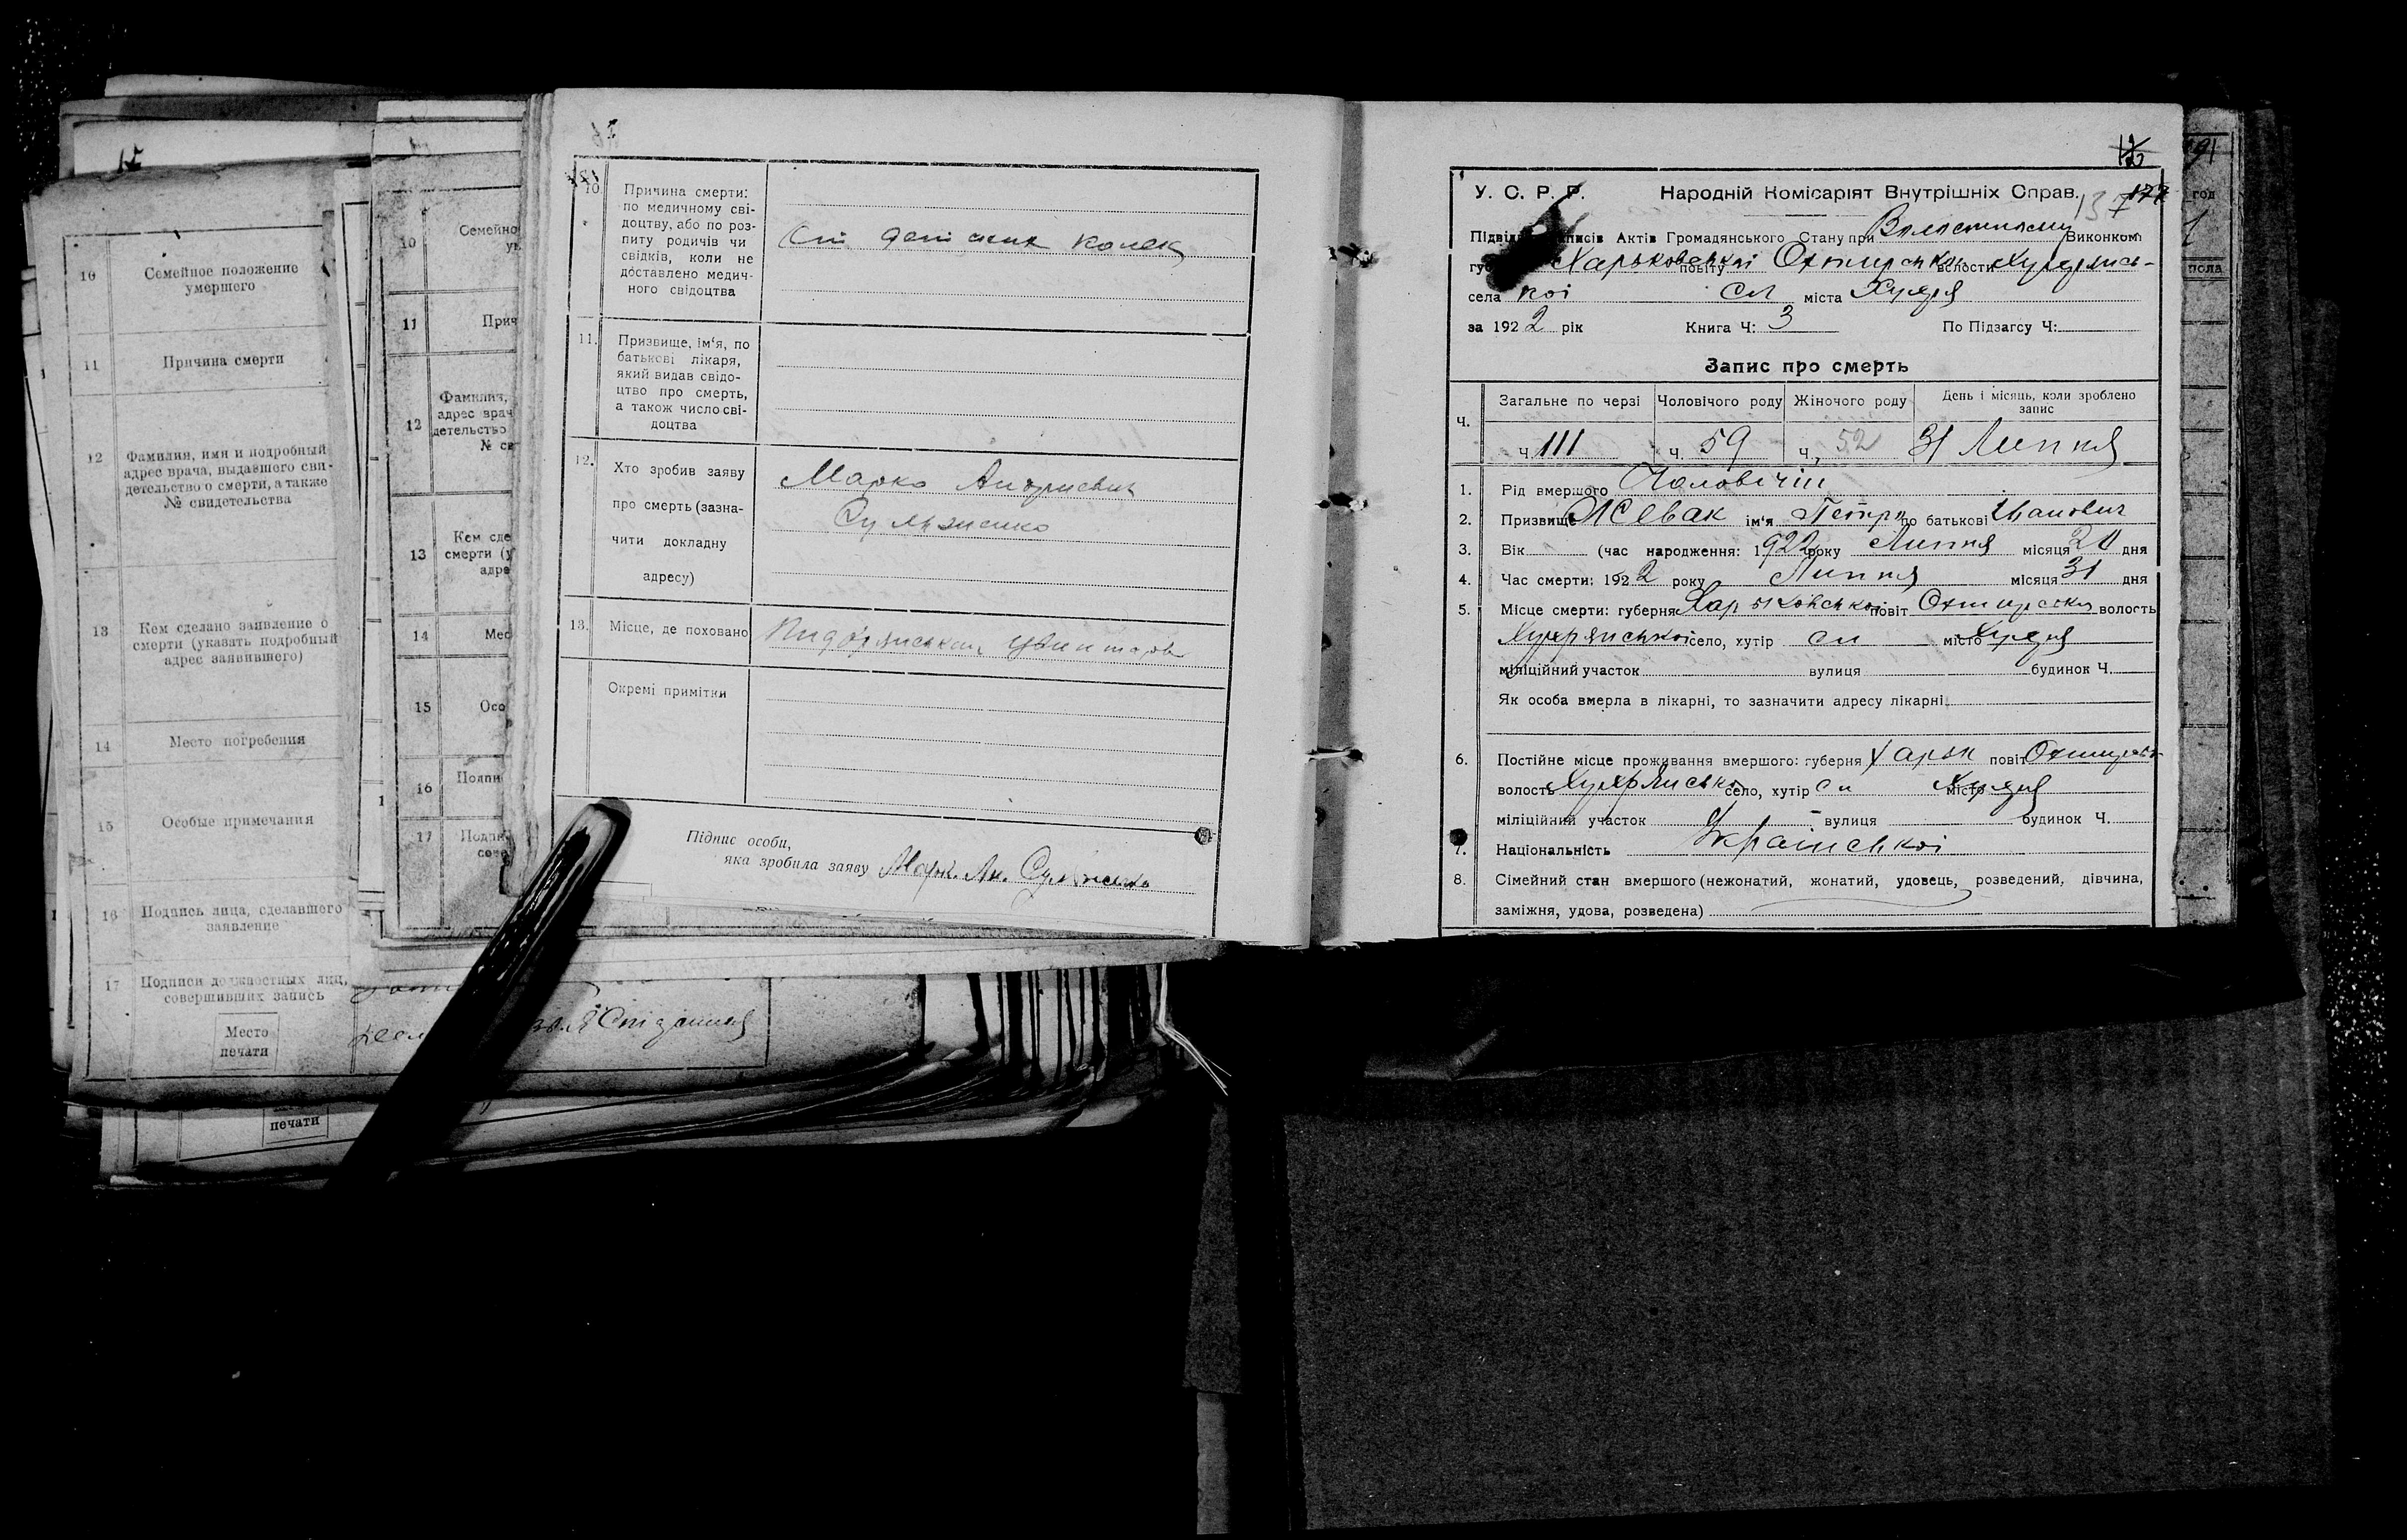 10
Семейное положение
умершего
11
Причина смерти
12
Фамилия, имя и подробный
адрес врача, выдавшего сви-
детельство о смерти, а также
№ свидетельства
13
Кем сделано заявление о
смерти (указать подробный
адрес заявившего)
14
Место погребения
15
Особые примечания
16
Подпись лица, сделавшего
заявление
17
Подписи должностных лиц,
совершивших запись
Место
печати
печати
10
Семейно
11
Прич
12
Фамилия,
адрес врач
детельство
№ св
13
Кем сде
смерти (у
адре
14
Мес
15
Осо
16
Подпи
17
Подпи
10.
Причина смерти:
по медичному сві-
доцтву, або по роз-
питу родичів чи
свідків, коли не
доставлено медич-
ного свідоцтва
От детских колек
11.
Призвище, ім'я, по
батькові лікаря,
який видав свідо-
цтво про смерть,
а також число сві-
доцтва
12.
Хто зробив заяву
про смерть (зазна-
чити докладну
адресу)
Марко Андриевич
13.
Місце, де поховано
Окремі примітки
Підпис особи,
яка зробила заяву Марк. Ан.
У. С. Р. Р. Народній Комісаріят Внутрішніх Справ.
177
Актів Громадянського Стану при Волостному Виконкомі
Харьковської повіту Охтирської волости
села кої сл міста Хухря
за 1922 рік Книга Ч: 3 По Підзагсу Ч:
Запис про смерть
Ч.
Загальне по черзі Чоловічого роду Жіночого роду День і місяць, коли зроблено
запис
ч. 111 ч. 59 ч. 52 31 Липня
1. Рід вмершого Чоловічій
2. Призвище Жевак ім'я Петро по батькові Иванович
3. Вік (час народження: 1922 року Липня місяця 20 дня
4. Час смерти: 1922 року Липня місяця 31 дня
5. Місце смерти: губерня Харьковської повіт Охтирської волость
Хухрянської село, хутір сл місто Хухря
міліційний участок вулиця будинок Ч.
Як особа вмерла в лікарні, то зазначити адресу лікарні
6. Постійне місце проживання вмершого: губерня Харьк повіт Охтирськ
волость Хухрянської село, хутір сл місто Хухря
міліційний участок вулиця будинок Ч.
7. Національність Украінської
8. Сімейний стан вмершого (нежонатий, жонатий, удовець, розведений, дівчина,
заміжня, удова, розведена)
год
пола